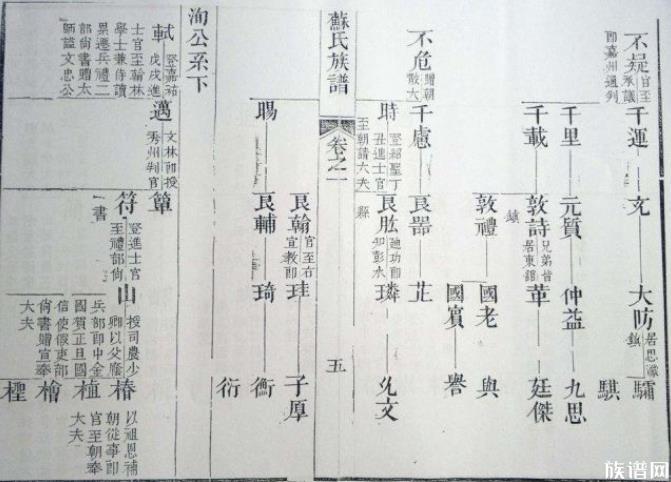 不疑
官至承議
郎嘉州通判
千運
文
大昉
居思濛鎮
驌
騏
千里
元質
仲益
九思
千載
敦詩
兄弟皆
居東館
鎮
革
廷傑
敦禮
國老
與
國賓
譽
不危
贈朝
散大
千慮
良器
芷
時
登紹聖丁
丑進士官
至朝請大夫
良肱
迪功郎
知彭水
縣
璘
允文
蘇氏族譜
卷之一
五
良翰
官至右
宣教郎
珪
子厚
賜
良輔
琦
衡
衍
洵公系下
軾
登嘉祐
戊戌進
士官至翰林
學士兼侍讀
累遷兵禮二
部尚書贈太
師諡文忠公
邁
文林郎授
秀州判官
簞
符
登進士官
至禮部尚
書
山
授司農少
卿以父廕
兵部郎中金
國賀正旦國
信使假吏部
尚書贈宣奉
大夫
椿
以祖恩補
朝從事郎
官至朝奉
大夫
植
檜
檉
族谱网